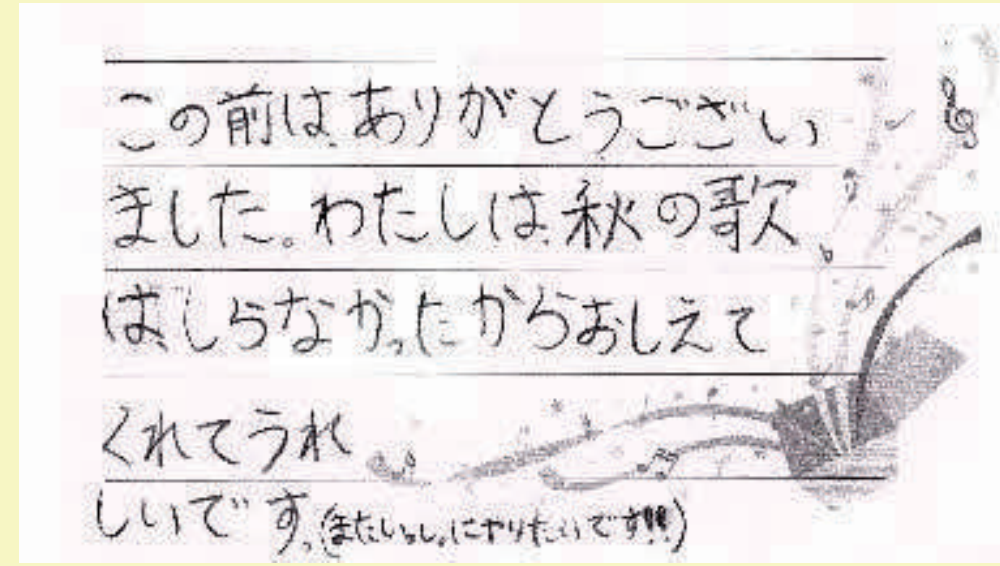 この前は、ありがとうござい
ました。わたしは、秋の歌
は、しらなかったからおしえて
くれてうれ
しいです。(またいっしょにやりたいです!!!)